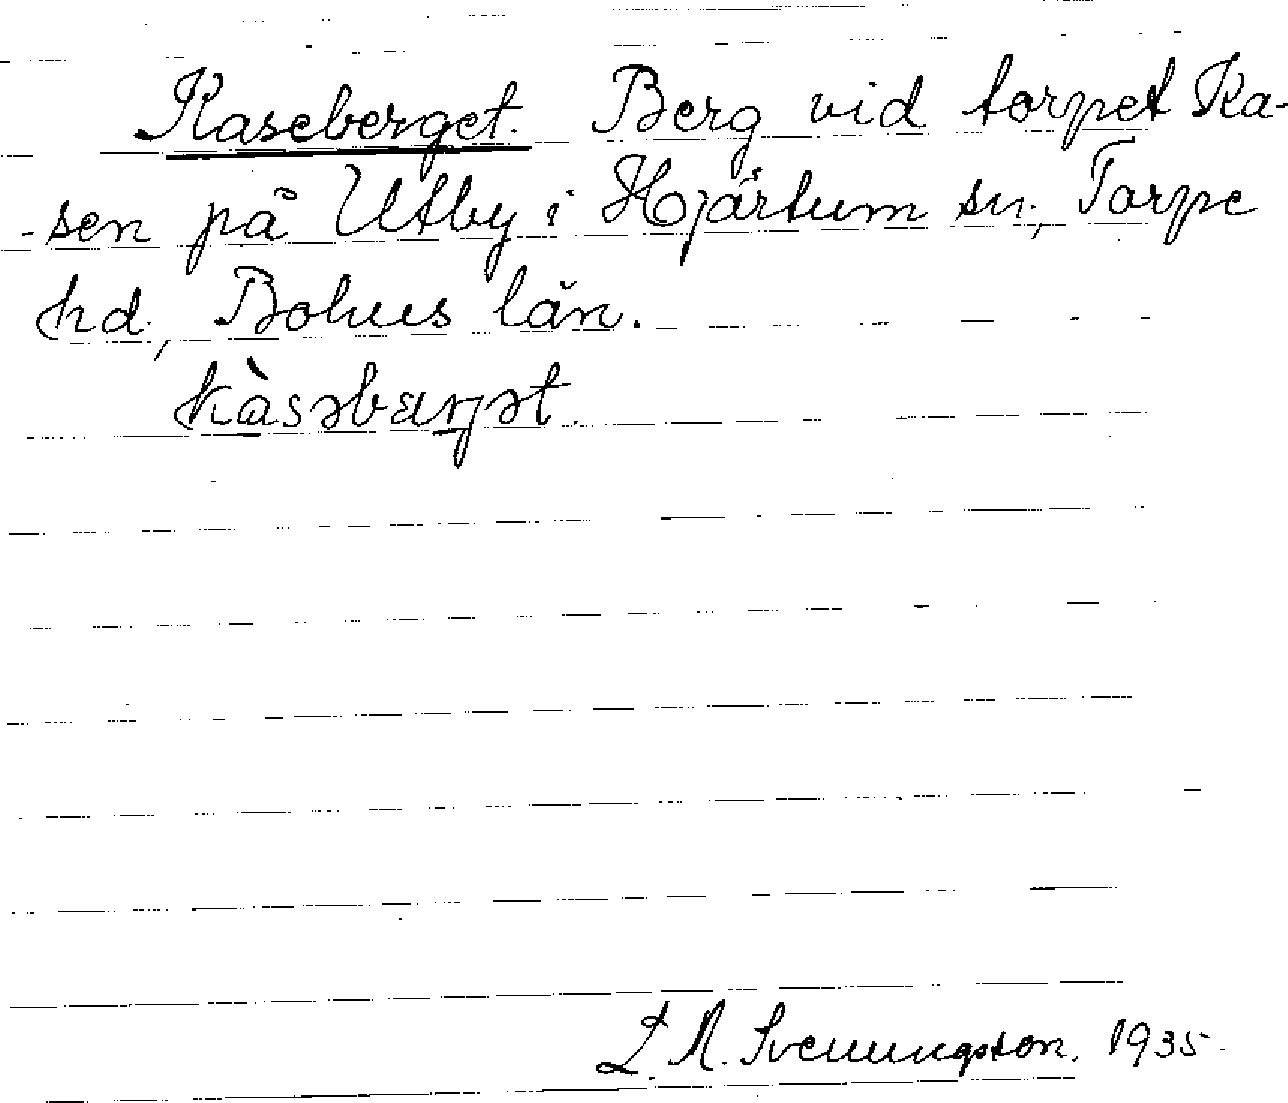 Kaseberget. Berg vid torpet Ka-
-sen på Utby i Hjärtum sn., Torpe
hd., Bohus län.
kàsəbærjət
L. M. Svenungsson. 1935.